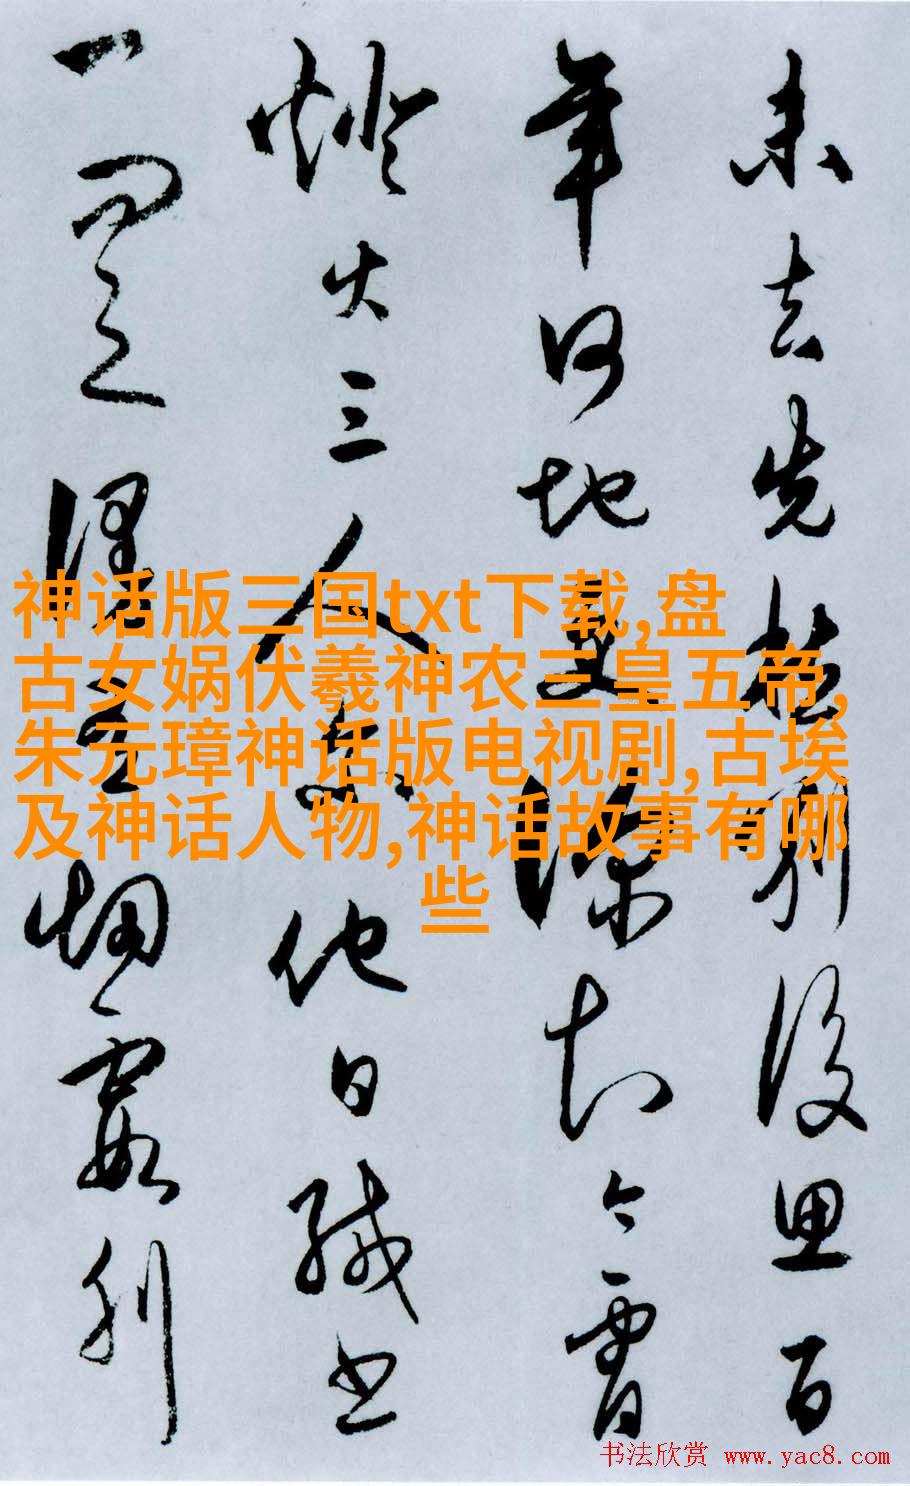 未去先愁别後思百
年何地更深知今宵
燈火三人尔他日緘書
一問之烟霞
神话版三国txt下载,盘
古女娲伏羲神农三皇五帝,
朱元璋神话版电视剧,古埃
及神话人物,神话故事有哪
些
书法欣赏 www.yac8.com